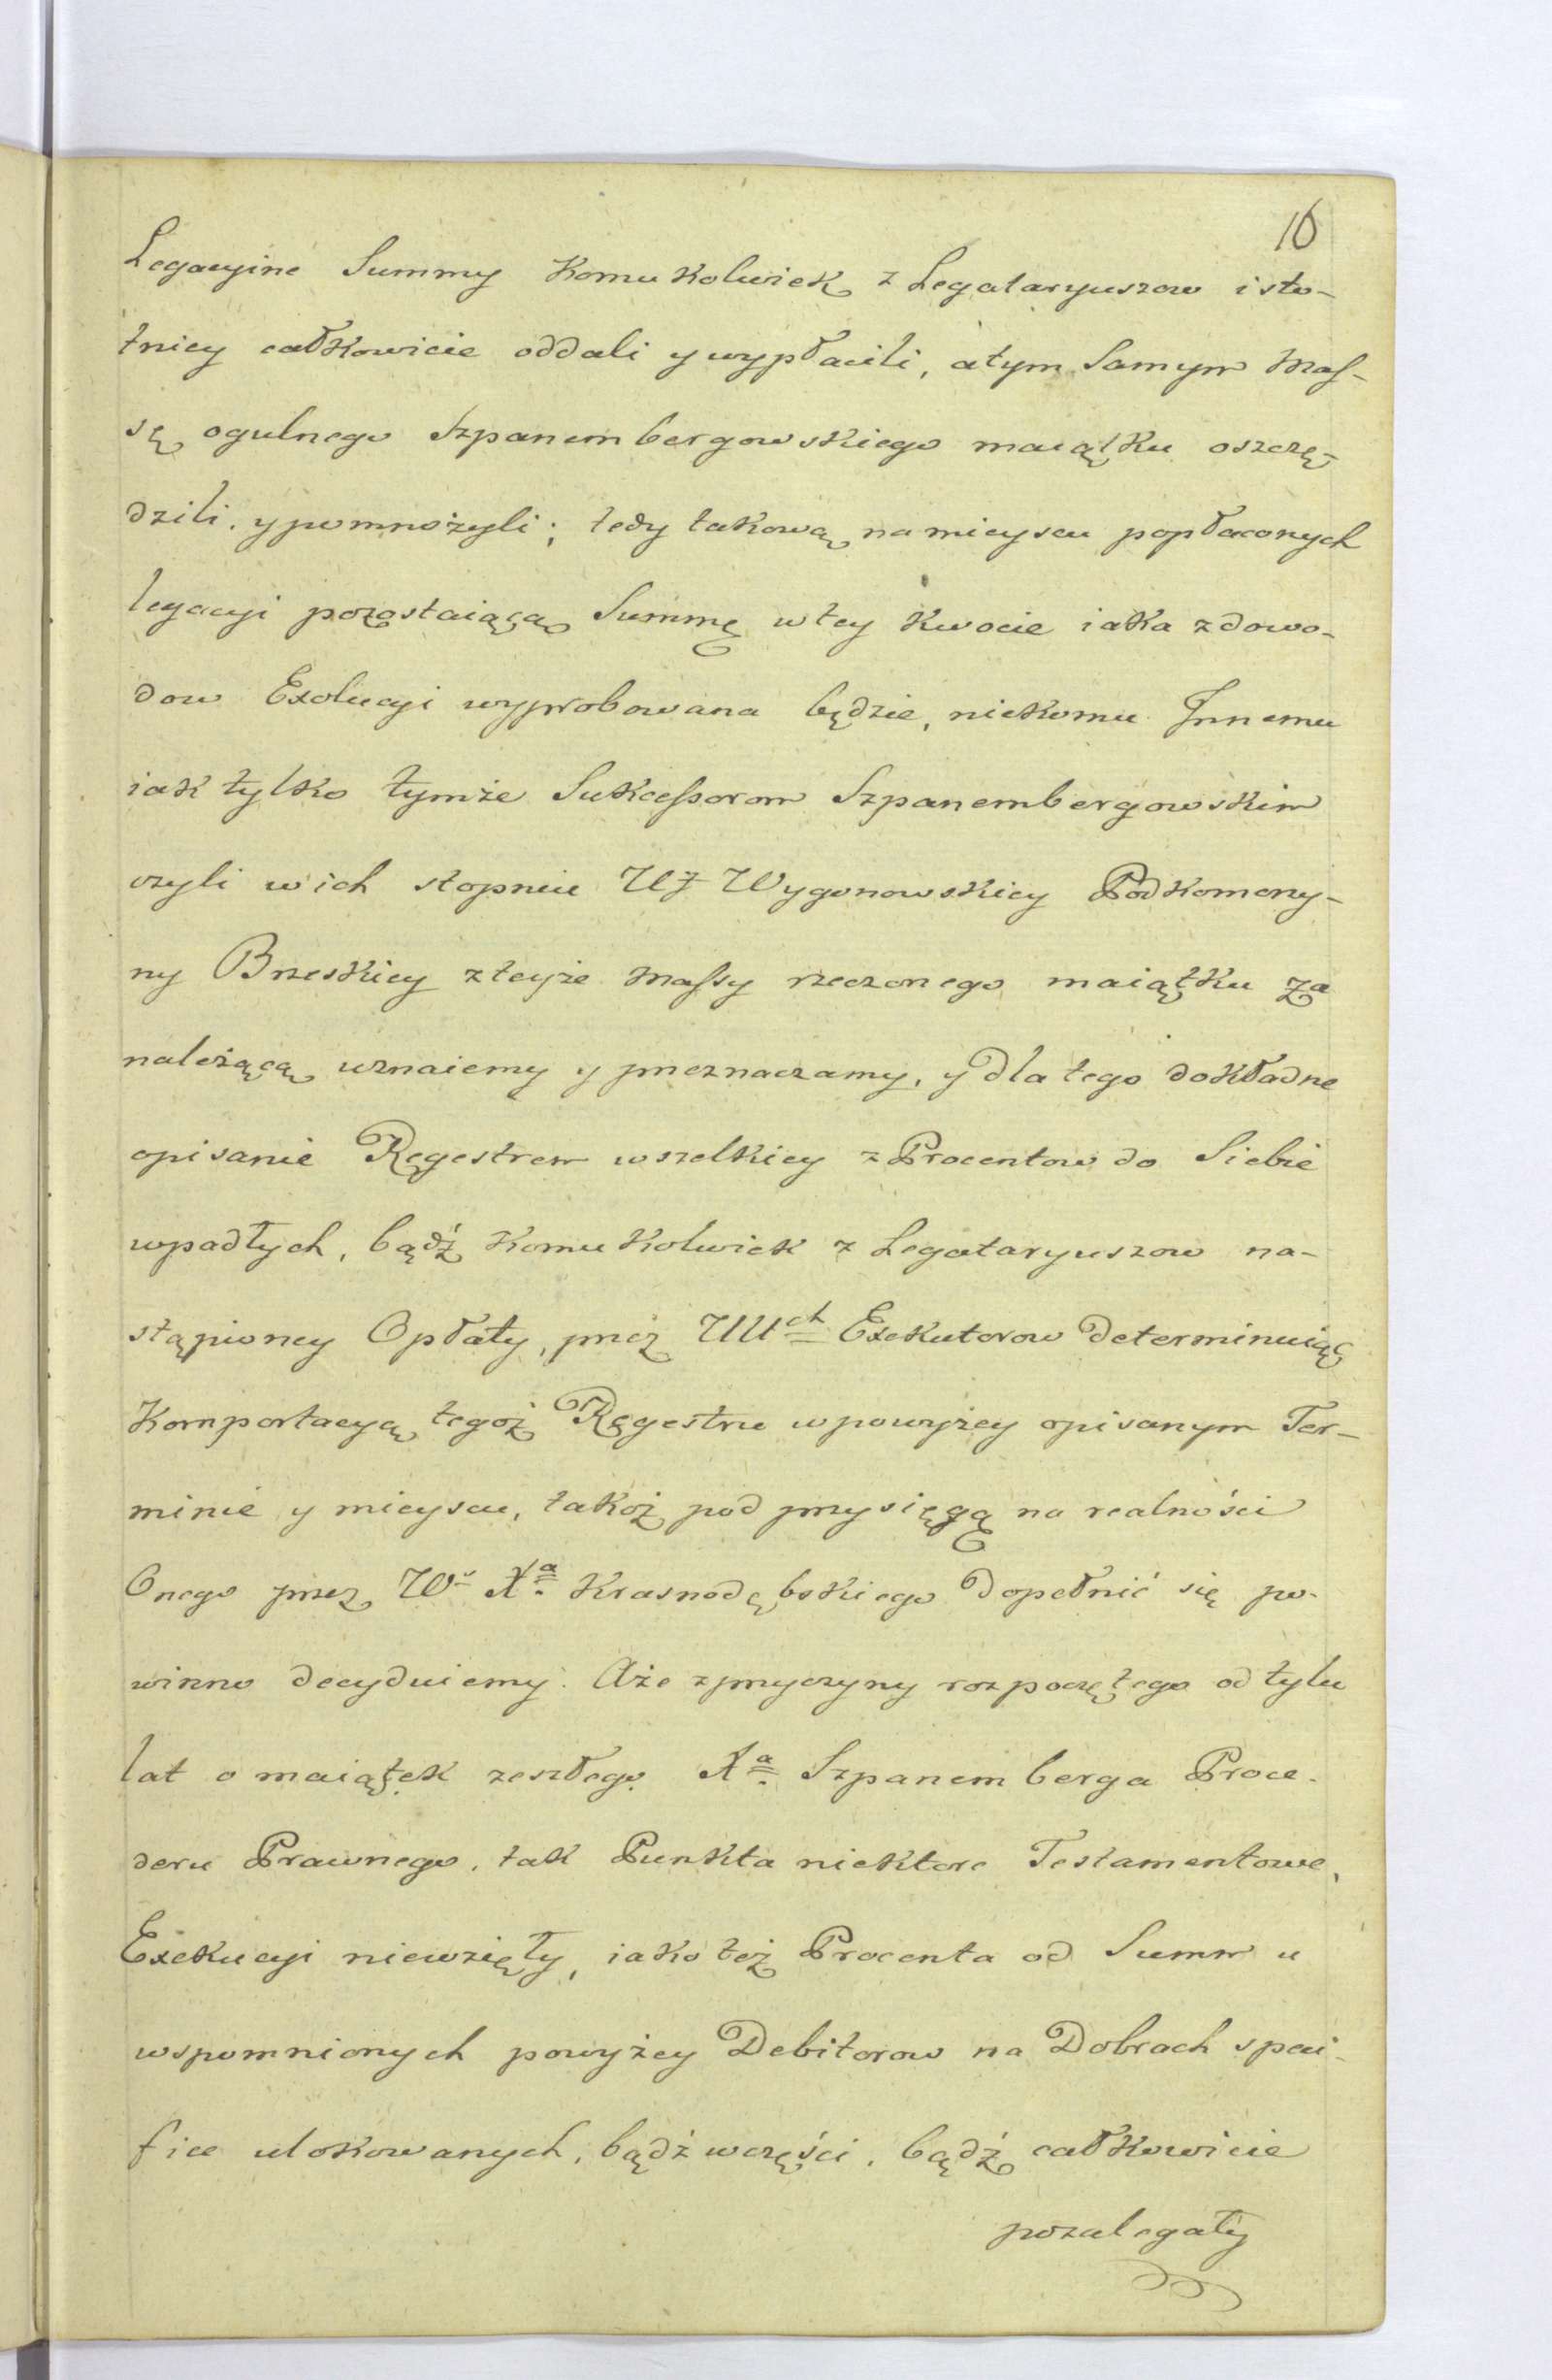 16
Legacyine Summy komukolwiek z Legataryuszow isto-
tniey całkowicie oddali y wypłacili, a tym Samym Maſ-
sę ogulnego Szpanembergowskiego maiątku oszczę-
dzili, y pomnożyli; tedy takową na mieyscu popłaconych
legacyi pozostaiącą Summę w tey kwocie iaka z dowo-
dow Exolucyi wyprobowana będzie, nikomu Innemu
iak tylko tymże Sukceſsorom Szpanembergowskim
czyli w ich stopniu WJ Wygonowskiey Podkomorzy-
ny Brzeskiey z teyże Maſsy rzeczonego maiątku za
należącą uznaiemy y przeznaczamy, y dla tego dokładne
opisanie Regestrem wszelkiey z Procentow do Siebie
wpadłych, bądź komukolwiek z Legataryuszow na-
stąpioney Opłaty, przez WW<sup>ch</sup> Exekutorow determinuiąc
Komportacyą tegoż Regestru w powyżey opisanym Ter-
minie y mieyscu, takoż pod przysięgą na realności
Onego przez W<sup>o</sup> X<sup>a</sup> Krasnodębskiego dopełnić się po-
winno decyduiemy. Aże z przyczyny rozpoczętego od tylu
lat o maiątek zeszłego X<sup>a</sup> Szpanemberga Proce-
deru Prawnego, tak Punkta niektore Testamentowe,
Exekucyi niewzięły, iako też Procenta od Summ u
wspomnionych powyżey Debitorow na Dobrach speci-
fice ulokowanych, bądź w części, bądź całkowicie
pozalegały